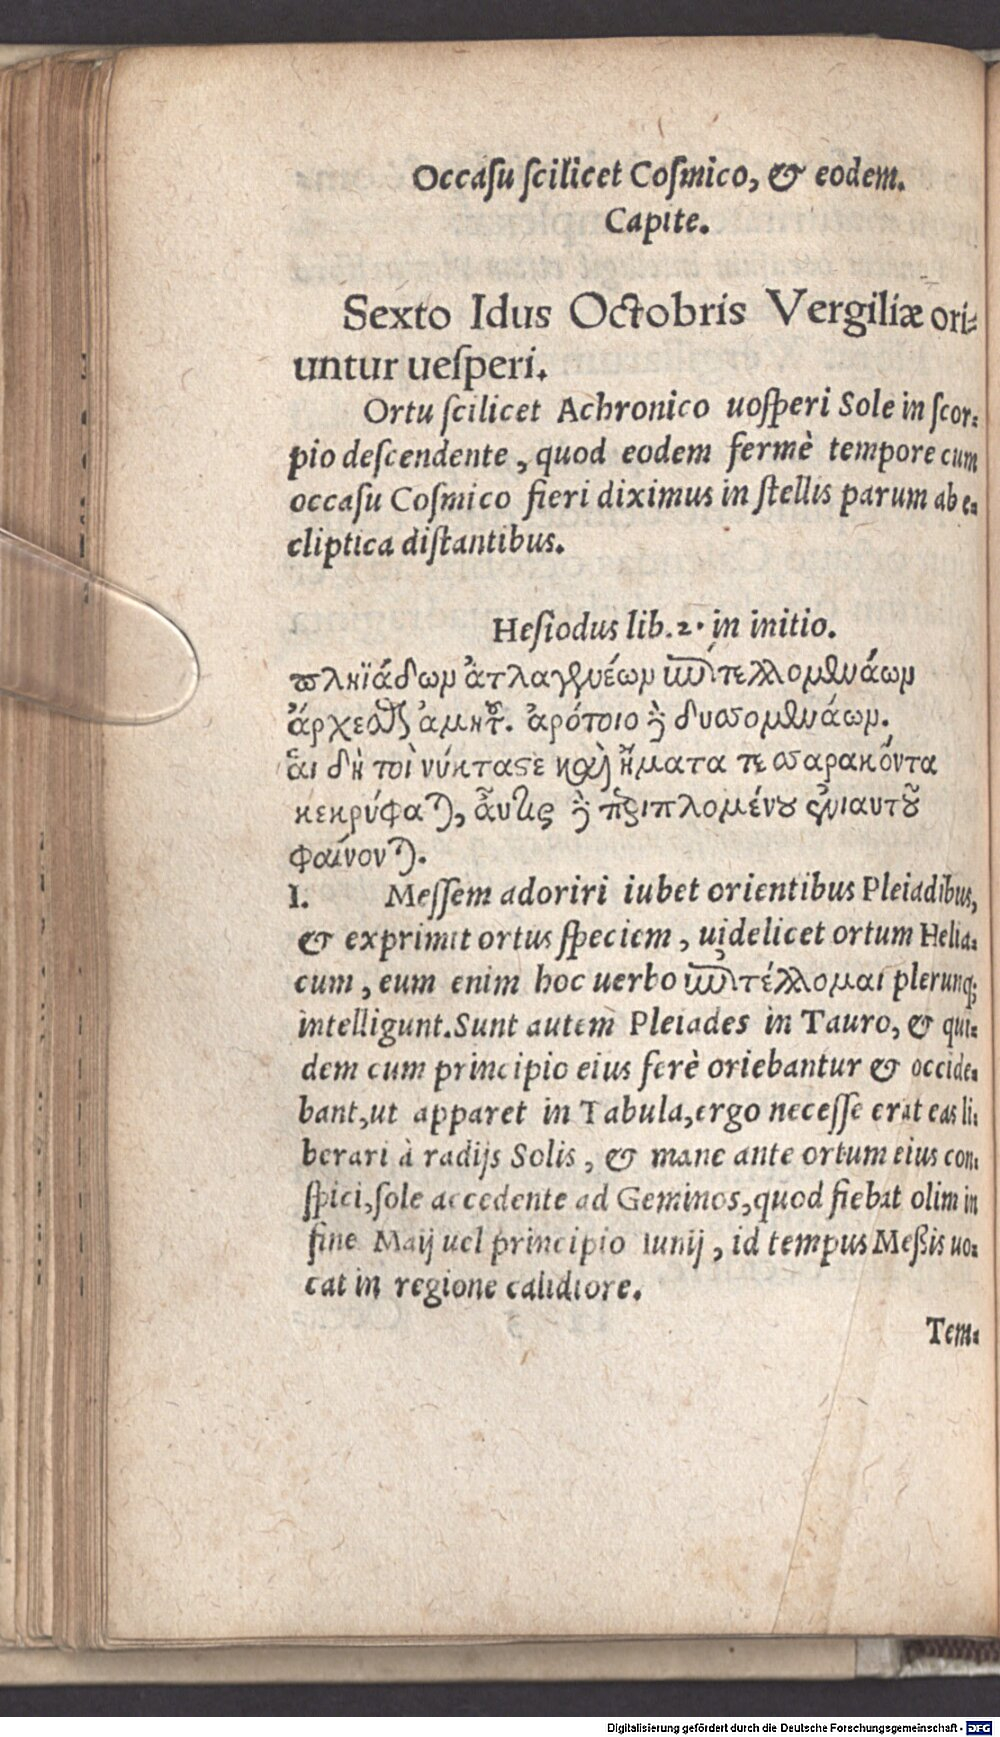 Occaſu ſcilicet Coſmico, & eodem.
Capite.
Sexto Idus Octobris Vergiliæ ori-
untur ueſperi.
Ortu ſcilicet Achronico uoſperi Sole in ſcor-
pio deſcendente, quod eodem fermè tempore cum
occaſu Coſmico fieri diximus in ſtellis parum ab e-
cliptica diſtantibus.
Heſiodus lib. 2. in initio.
πληϊάδων ἀτλαγενέων ἐπιτελλομενάων
ἄρχεσθ' ἀμητ. ἀρότοιο δὲ δυσομενάων.
αἳ δὴ τοὶ νύκτας τε καὶ ἤματα τεσσαράκοντα
κεκρύφαται, αὖτις δὲ περιπλομένου ἐνιαυτοῦ
φαίνονται.
I. Meſſem adoriri iubet orientibus Pleiadibus,
& exprimit ortus ſpeciem, uidelicet ortum Helia-
cum, eum enim hoc uerbo ἐπιτέλλομαι plerunq;
intelligunt. Sunt autem Pleiades in Tauro, & qui-
dem cum principio eius ferè oriebantur & occide-
bant, ut apparet in Tabula, ergo neceſſe erat eas li-
berari à radijs Solis, & mane ante ortum eius con-
ſpici, ſole accedente ad Geminos, quod fiebat olim in
fine Maij uel principio Iunij, id tempus Meßis uo-
cat in regione calidiore.
Tem-
Digitalisierung gefördert durch die Deutsche Forschungsgemeinschaft - DFG